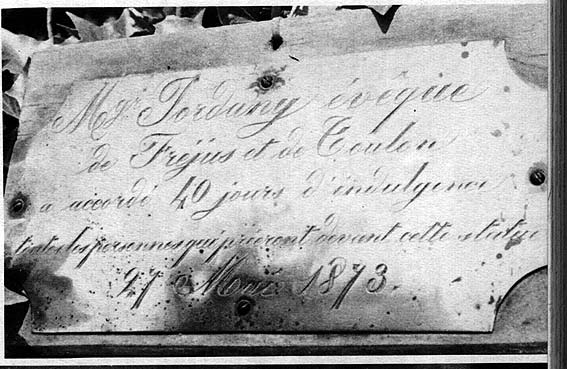 Mgr Jordany évêque
de Fréjus et de Toulon
a accordé 40 jours d'indulgence
toutes les personnes qui prieront devant cette statue
27 Mai 1873.